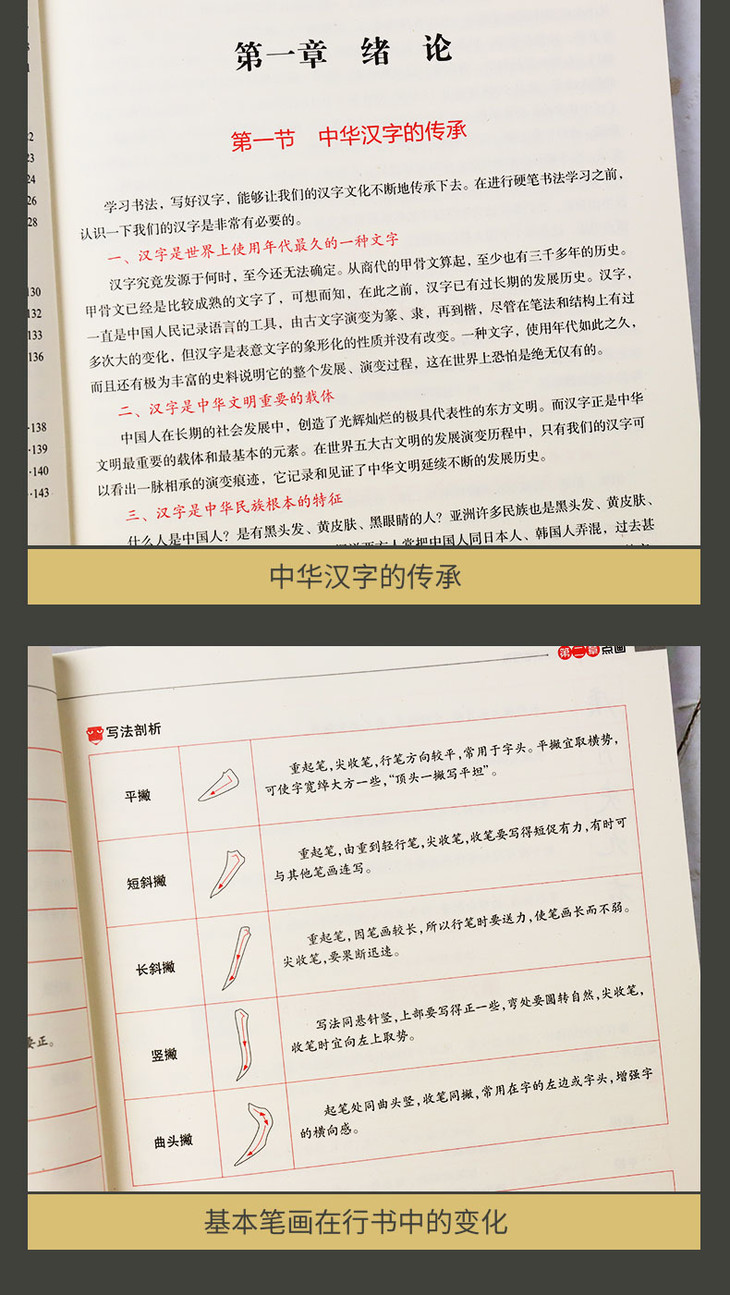 第一章 绪 论
第一节 中华汉字的传承
学习书法，写好汉字，能够让我们的汉字文化不断地传承下去。在进行硬笔书法学习之前，
认识一下我们的汉字是非常有必要的。
一、汉字是世界上使用年代最久的一种文字
汉字究竟发源于何时，至今还无法确定。从商代的甲骨文算起，至少也有三千多年的历史。
甲骨文已经是比较成熟的文字了，可想而知，在此之前，汉字已有过长期的发展历史。汉字，
一直是中国人民记录语言的工具，由古文字演变为篆、隶，再到楷，尽管在笔法和结构上有过
多次大的变化，但汉字是表意文字的象形化的性质并没有改变。一种文字，使用年代如此之久，
而且还有极为丰富的史料说明它的整个发展、演变过程，这在世界上恐怕是绝无仅有的。
二、汉字是中华文明重要的载体
中国人在长期的社会发展中，创造了光辉灿烂的极具代表性的东方文明。而汉字正是中华
文明最重要的载体和最基本的元素。在世界五大古文明的发展演变历程中，只有我们的汉字可
以看出一脉相承的演变痕迹，它记录和见证了中华文明延续不断的发展历史。
三、汉字是中华民族根本的特征
什么人是中国人？是有黑头发、黄皮肤、黑眼睛的人？亚洲许多民族也是黑头发、黄皮肤、
西方人常把中国人同日本人、韩国人弄混，过去甚
23
24
26
28
130
132
133
136
·138
·139
·140
·143
中华汉字的传承
第二章 点画
写法剖析
平撇
重起笔，尖收笔，行笔方向较平，常用于字头。平撇宜取横势，
可使字宽绰大方一些，“顶头一撇写平坦”。
短斜撇
重起笔，由重到轻行笔，尖收笔，收笔要写得短促有力，有时可
与其他笔画连写。
长斜撇
重起笔，因笔画较长，所以行笔时要送力，使笔画长而不弱。
尖收笔，要果断迅速。
竖撇
写法同悬针竖，上部要写得正一些，弯处要圆转自然，尖收笔，
收笔时宜向左上取势。
曲头撇
起笔处同曲头竖，收笔同撇，常用在字的左边或字头，增强字
的横向感。
要正。
基本笔画在行书中的变化